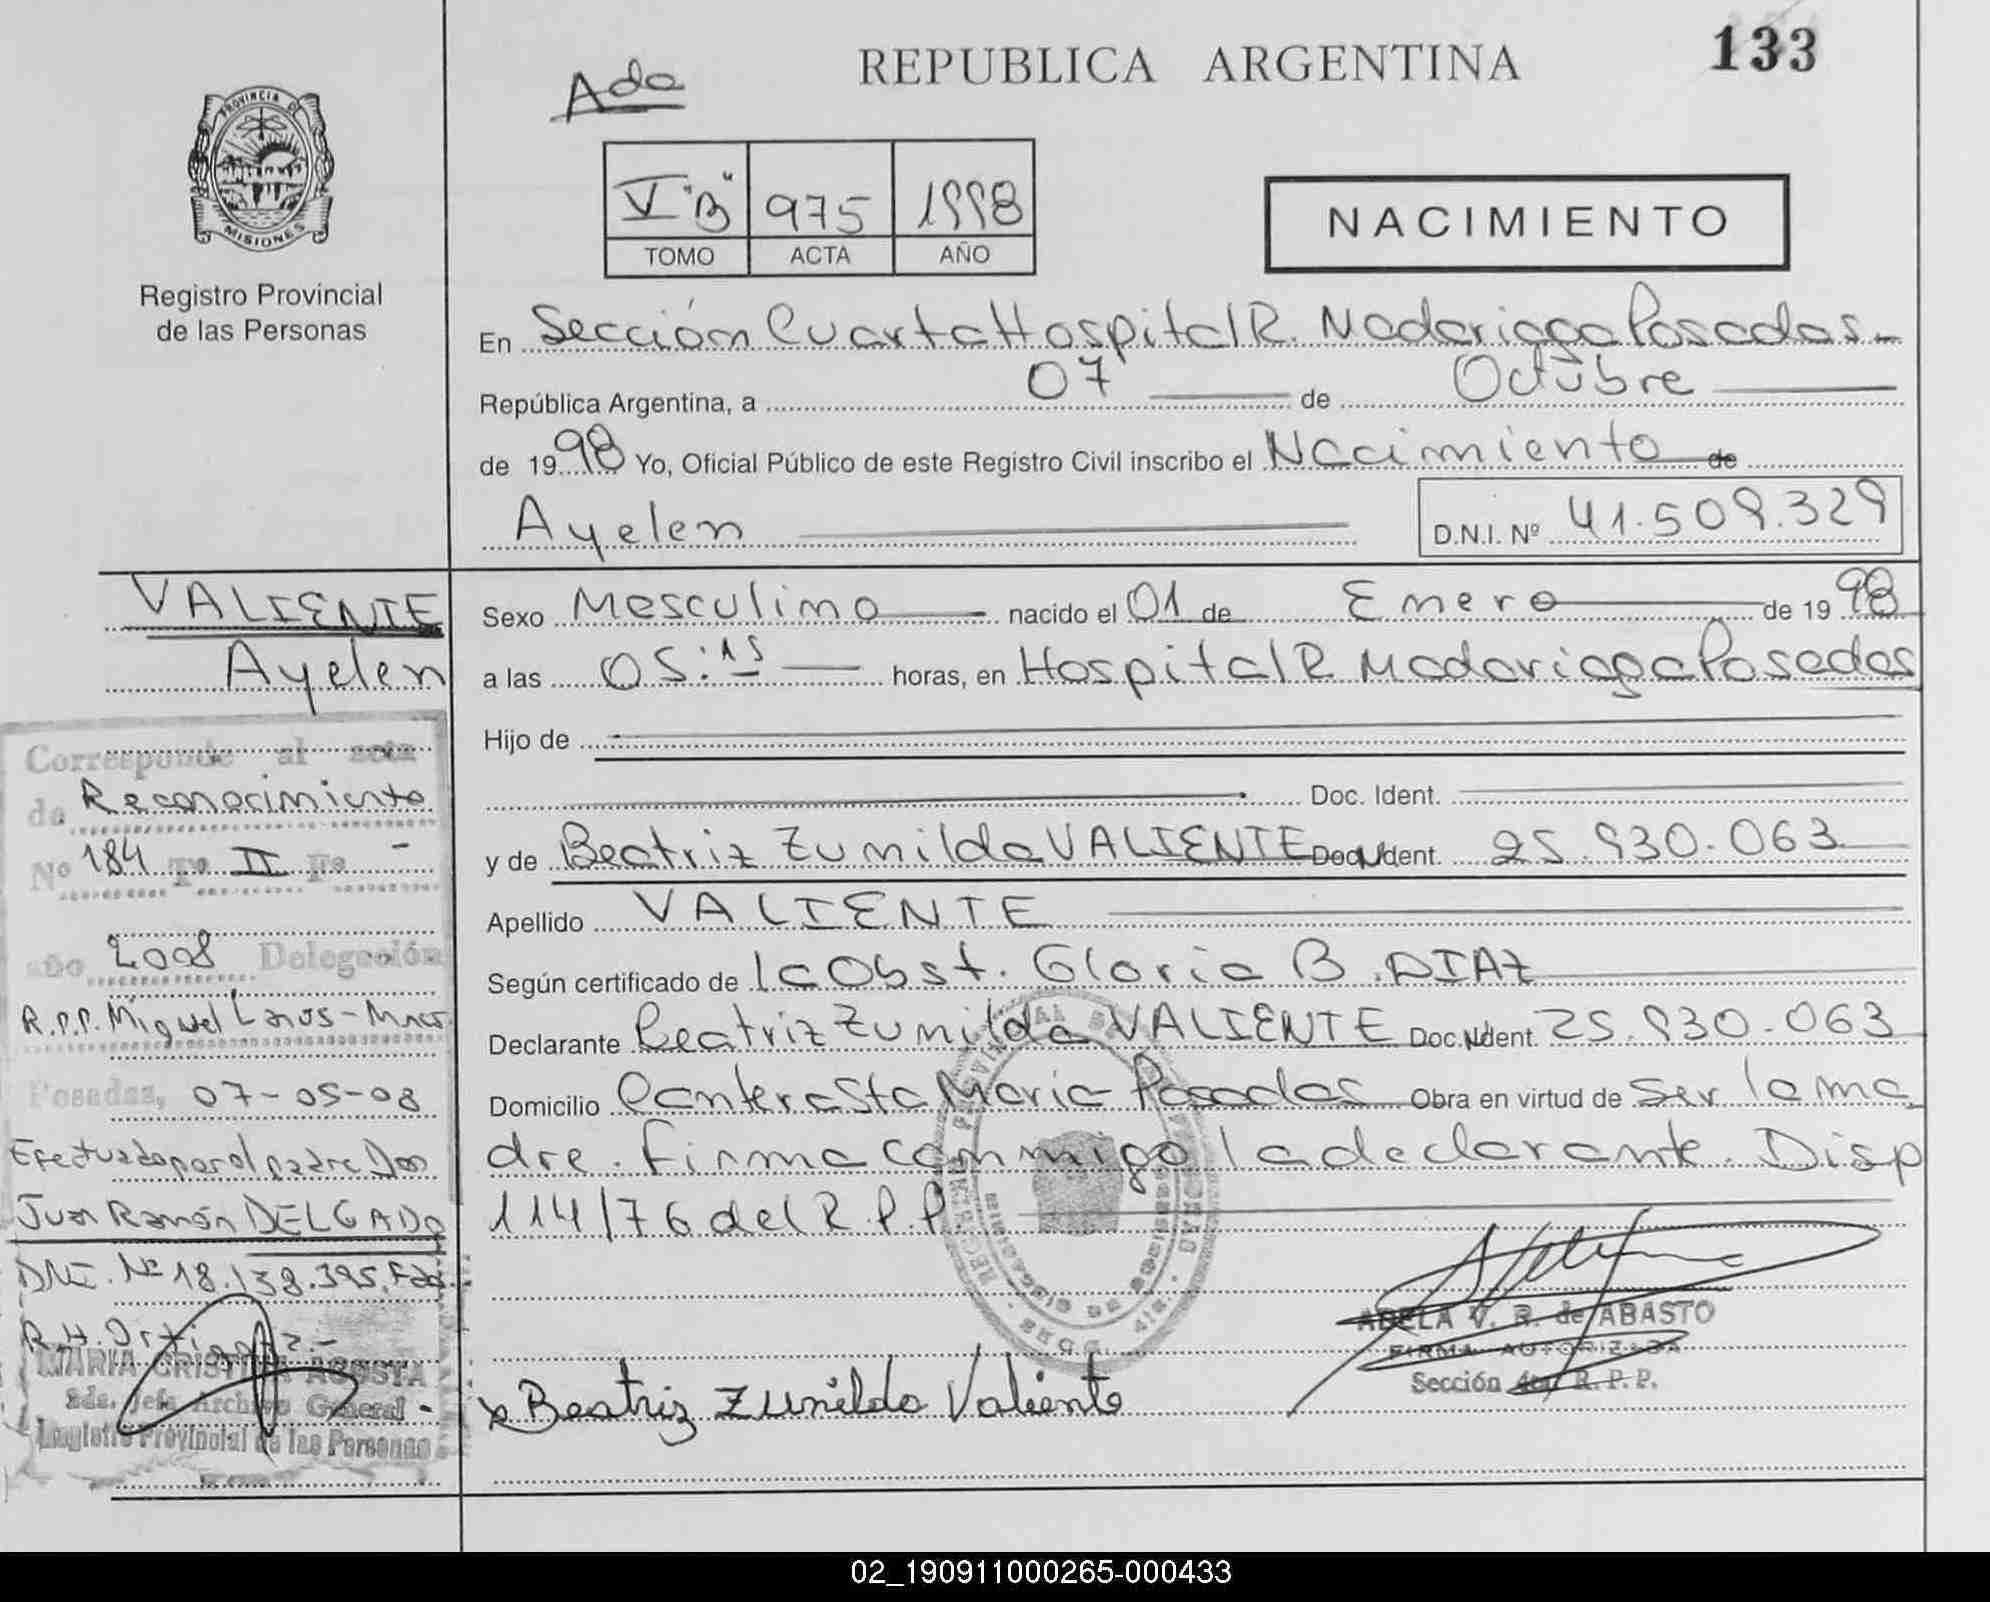 Ada
REPUBLICA ARGENTINA
133
PROVINCIA DE
MISIONES
Registro Provincial
de las Personas
V "B" 975 1998
TOMO ACTA AÑO
NACIMIENTO
En Sección Cuarta Hospital R. Madariaga Posadas
República Argentina, a 07 de Octubre
de 1998 Yo, Oficial Público de este Registro Civil inscribo el Nacimiento de
Ayelen
D.N.I. Nº 41.509.329
VALIENTE
Ayelen
Sexo Masculino nacido el 01 de Enero de 1998
a las 05:15 horas, en Hospital R Madariaga Posadas
Hijo de
Doc. Ident.
y de Beatriz Zunilda VALIENTE Doc. Ident. 25.930.063
Apellido VALIENTE
Según certificado de la Obst. Gloria B. DIAZ
Declarante Beatriz Zunilda VALIENTE Doc. Ident. 25.930.063
Domicilio Cantera Sta Maria Posadas Obra en virtud de ser la ma
dre. Firma conmigo la declarante. Disp
114/76 del R.P.P.
Corresponde al acta
de Reconocimiento
Nº 184 Tº II Fº -
año 2008 Delegación
R.P.P. Miguel Lanus - Mnes
Posadas, 07-05-08
Efectuado por el padre Don
Juan Ramón DELGADO
DNI. Nº 18.139.395. Fdo.
MARIA CRISTINA ACOSTA
2da. Jefa Archivo General
Registro Provincial de las Personas
ADELA V. R. de ABASTO
FIRMA AUTORIZADA
Sección 4ta. R. P. P.
x Beatriz Zunilda Valiente
02_190911000265-000433